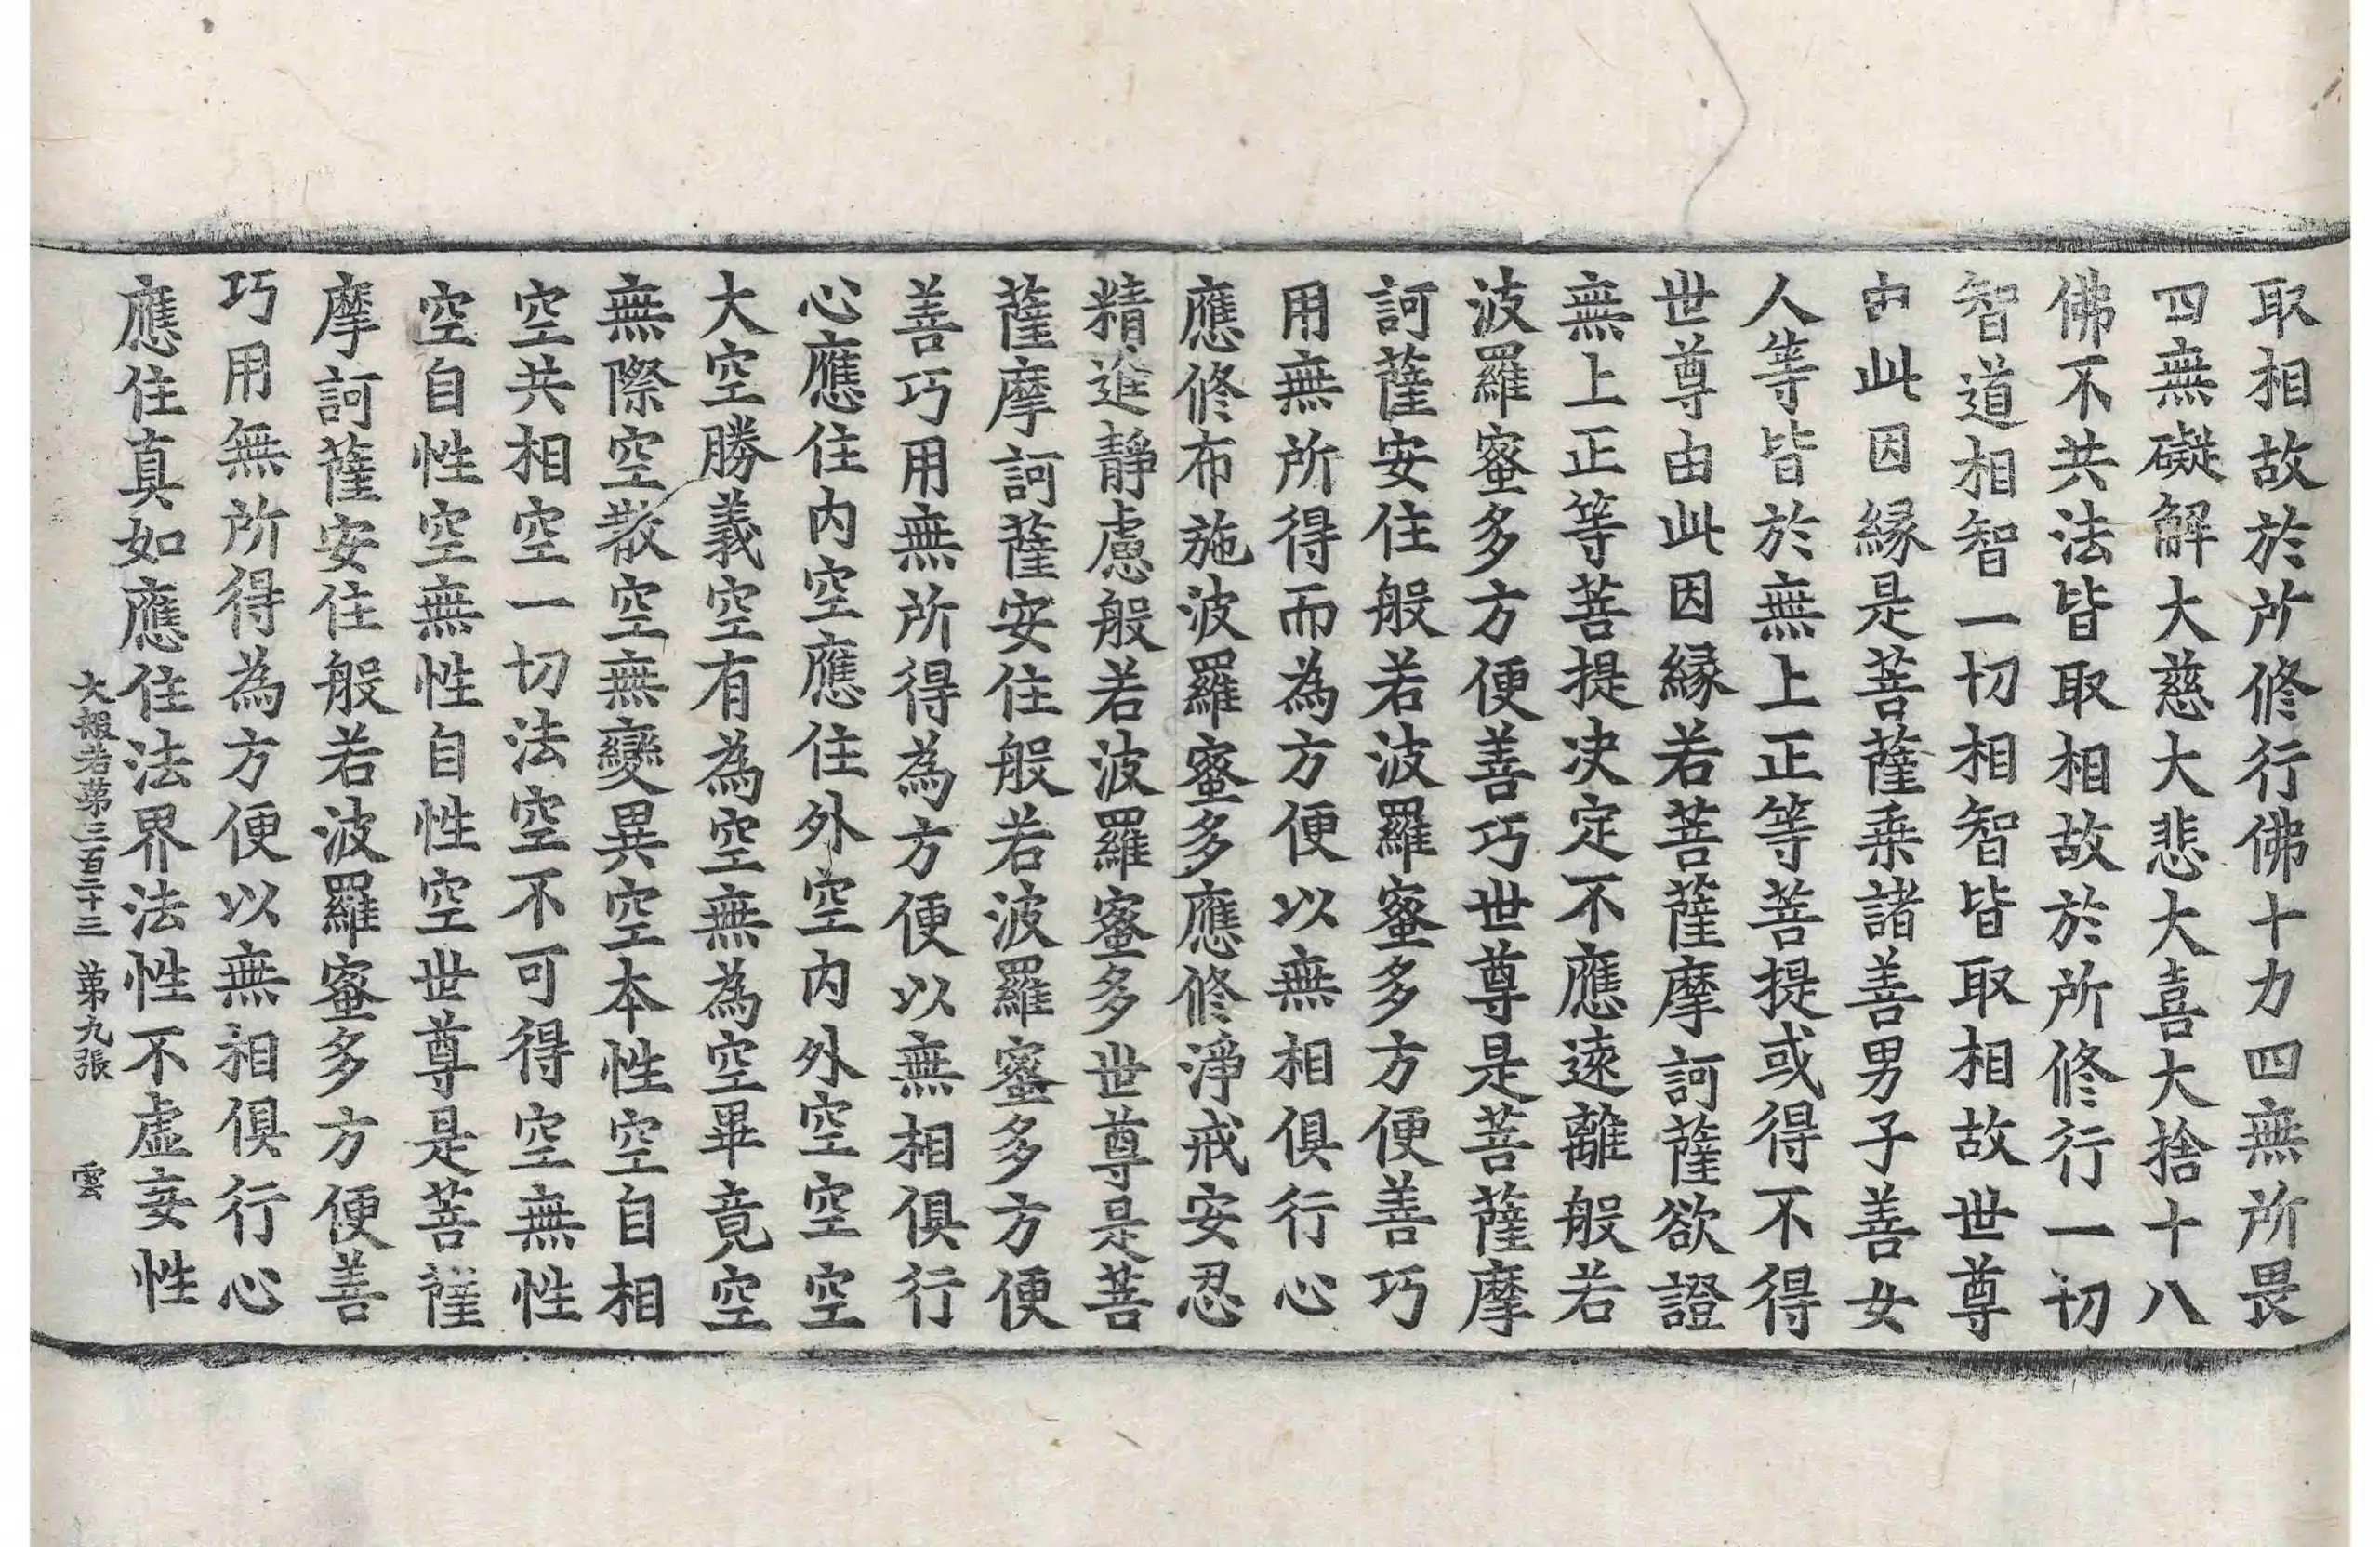 取相故於所修行佛十力四無所畏
四無礙解大慈大悲大喜大捨十八
佛不共法皆取相故於所修行一切
智道相智一切相智皆取相故世尊
由此因緣是菩薩乗諸善男子善女
人等皆於無上正等菩提或得不得
世尊由此因緣若菩薩摩訶薩欲證
無上正等菩提決定不應遠離般若
波羅蜜多方便善巧世尊是菩薩摩
訶薩安住般若波羅蜜多方便善巧
用無所得而為方便以無相俱行心
應修布施波羅蜜多應修淨戒安忍
精進靜慮般若波羅蜜多世尊是菩
薩摩訶薩安住般若波羅蜜多方便
善巧用無所得為方便以無相俱行
心應住內空應住外空內外空空空
大空勝義空有為空無為空畢竟空
無際空散空無變異空本性空自相
空共相空一切法空不可得空無性
空自性空無性自性空世尊是菩薩
摩訶薩安住般若波羅蜜多方便善
巧用無所得為方便以無相俱行心
應住真如應住法界法性不虛妄性
大般若第三百二十三 第九張 雲